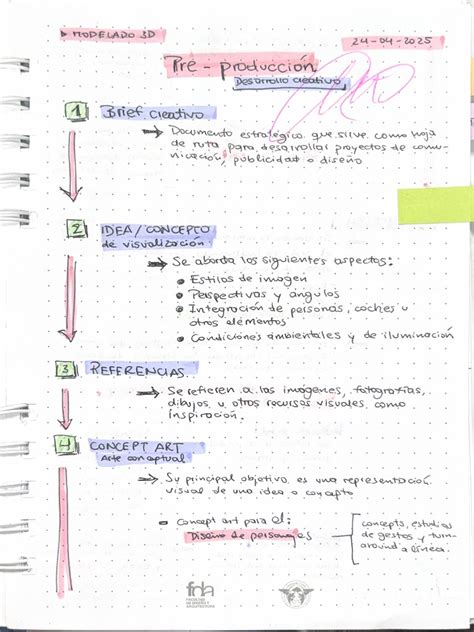 ▶ MODELADO 3D
24-04-2025
Pre - producción
Desarrollo creativo
1 Brief creativo
→ Documento estratégico que sirve como hoja
de ruta para desarrollar proyectos de comu-
nicación, publicidad o diseño
2 IDEA/CONCEPTO
de visualización
→ Se aborda los siguientes aspectos:
• Estilos de imagen
• Perspectivas y ángulos
• Integración de personas, coches u
otros elementos
• Condiciones ambientales y de iluminación
3 REFERENCIAS
→ Se refieren a las imágenes, fotografías,
dibujos u otros recursos visuales como
inspiración.
4 CONCEPT ART
Arte conceptual
→ Su principal objetivo es una representación
visual de una idea o concepto
• Concept art para el:
Diseño de personajes
concepts, estudios
de gestos y turn-
around a línea.
fda
FACULTAD
DE DISEÑO Y
ARQUITECTURA